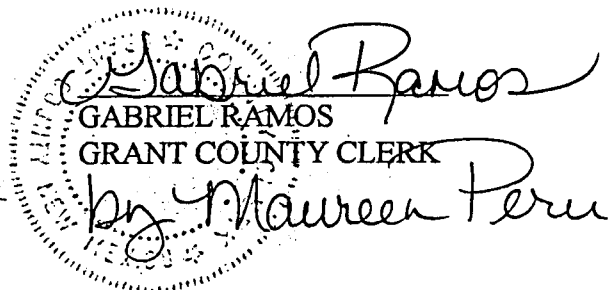 Gabriel Ramos
GABRIEL RAMOS
GRANT COUNTY CLERK
by Maureen Peru
NEW MEXICO